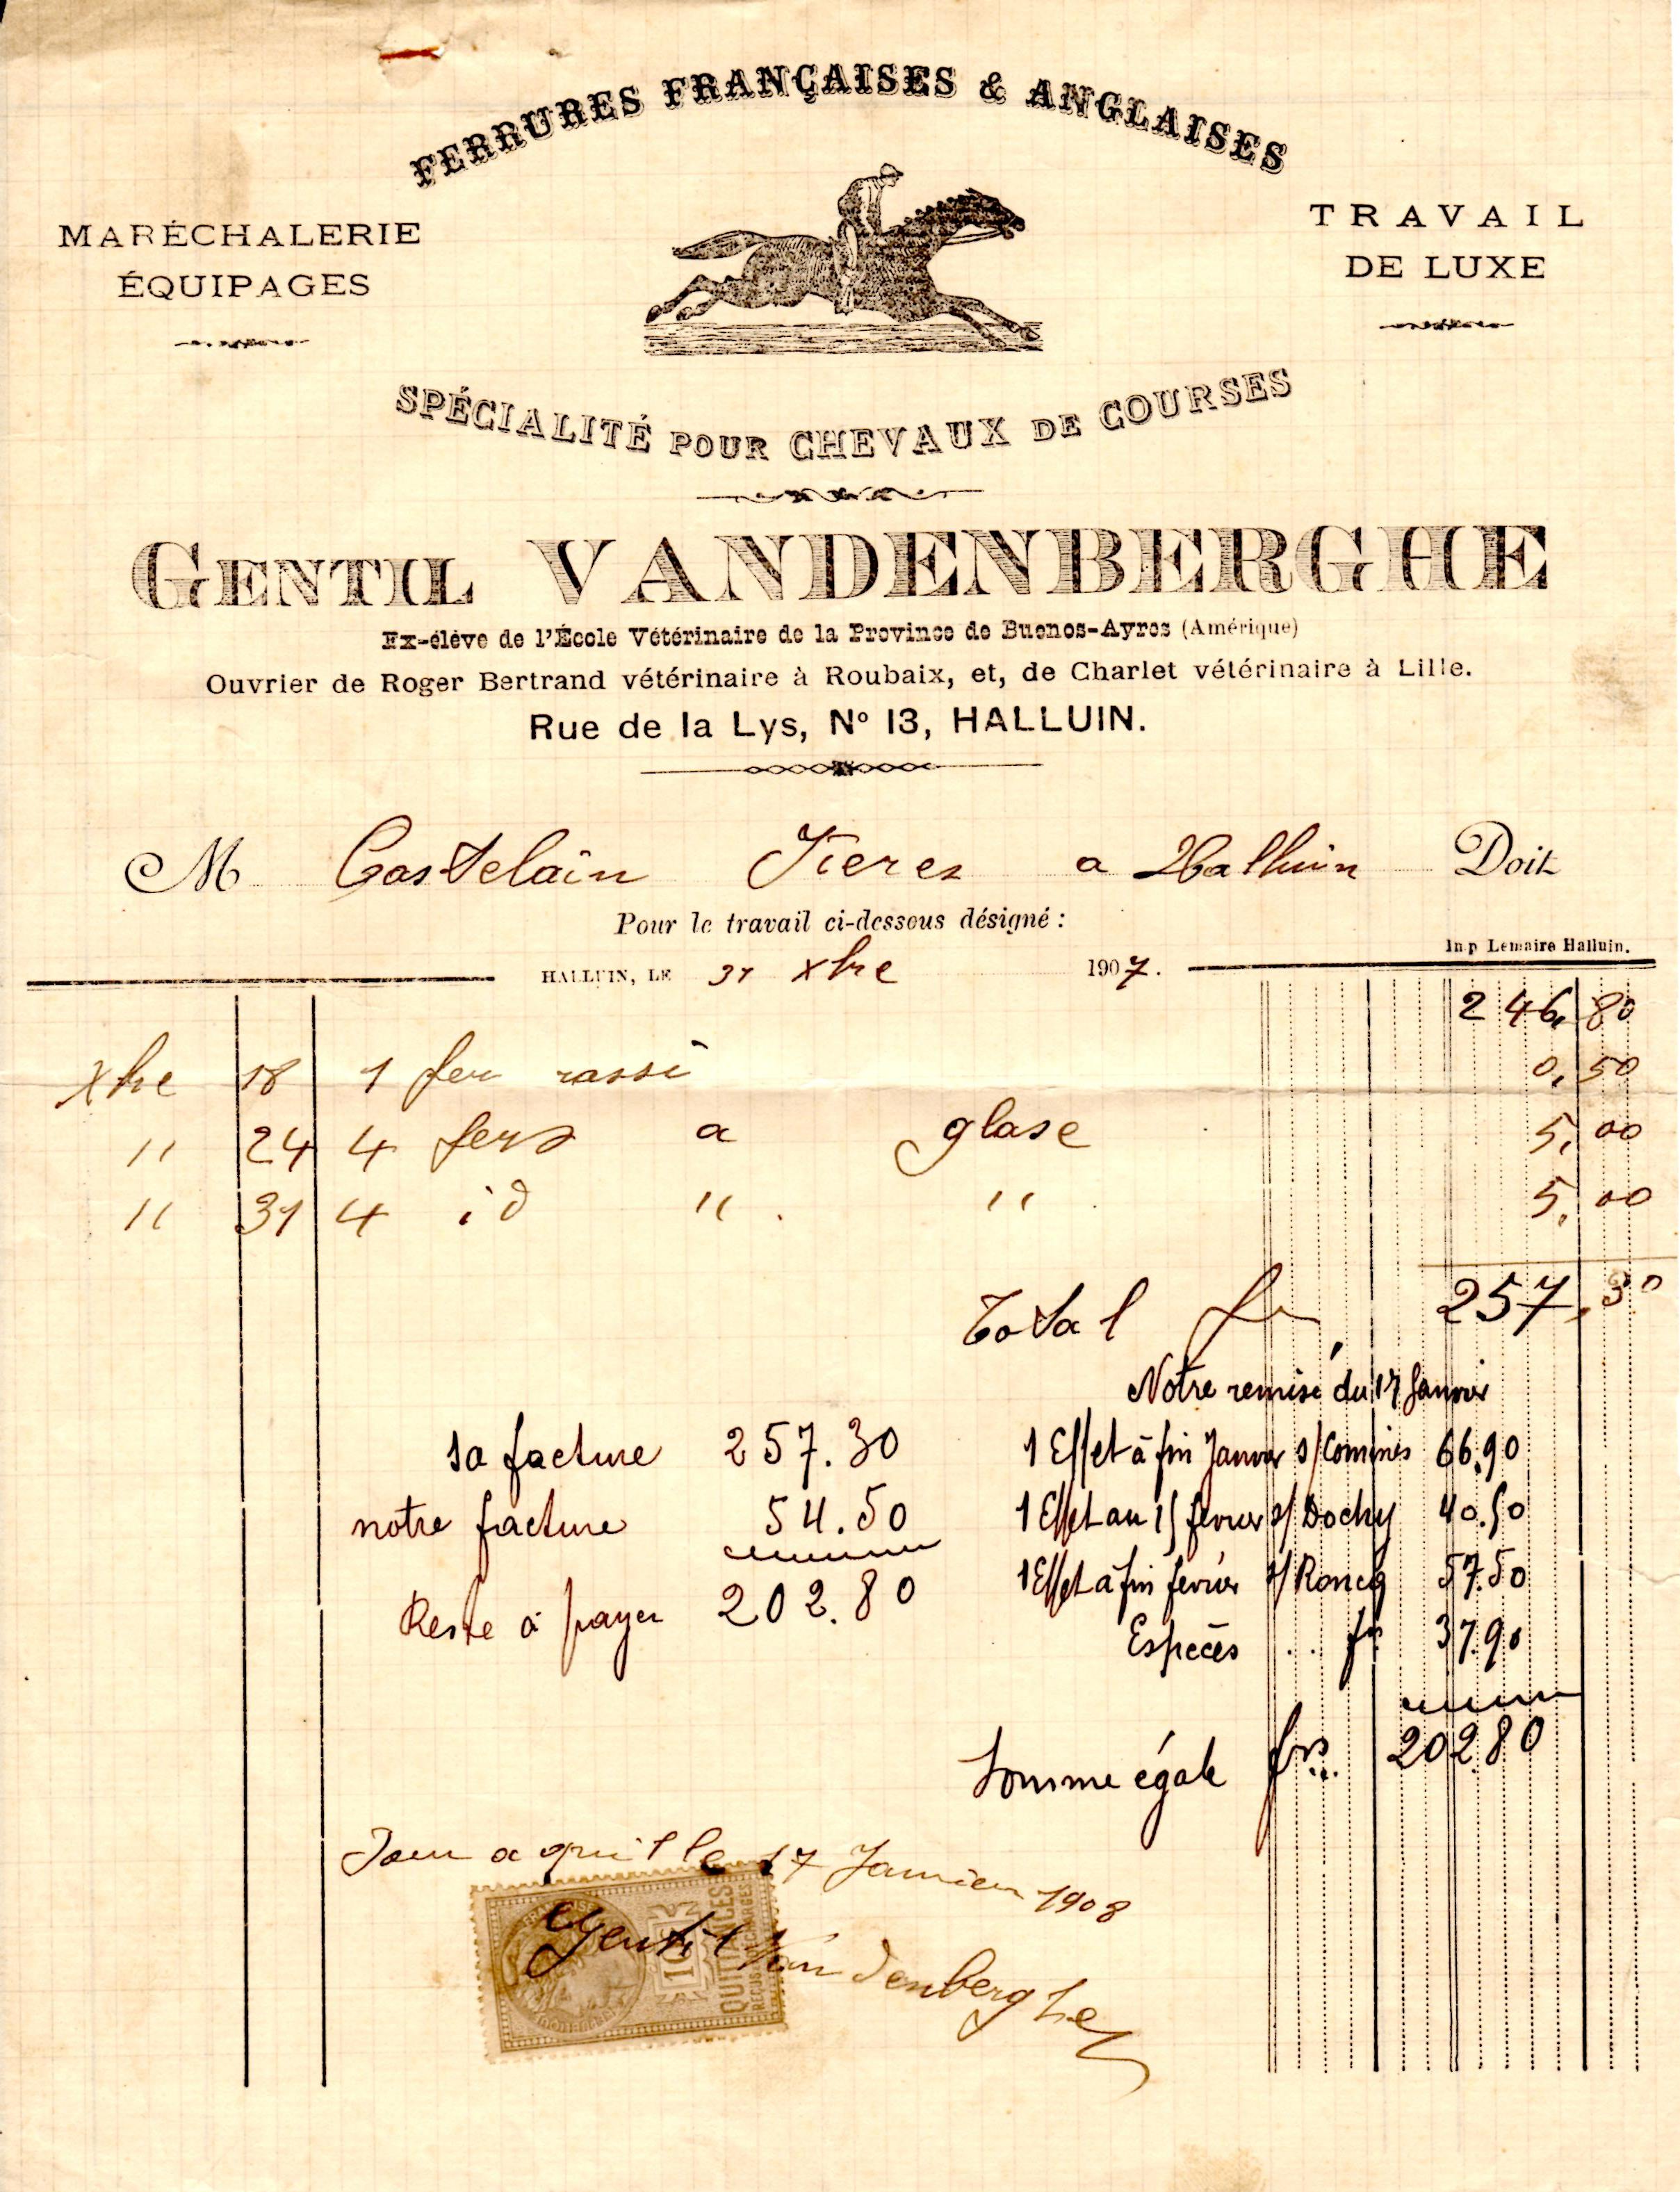 FERRURES FRANÇAISES & ANGLAISES
MARÉCHALERIE
ÉQUIPAGES
TRAVAIL
DE LUXE
SPÉCIALITÉ POUR CHEVAUX DE COURSES
GENTIL VANDENBERGHE
Ex-élève de l'École Vétérinaire de la Province de Buenos-Ayres (Amérique)
Ouvrier de Roger Bertrand vétérinaire à Roubaix, et, de Charlet vétérinaire à Lille.
Rue de la Lys, N° 13, HALLUIN.
M Castelain Fieres a Halluin Doit
Pour le travail ci-dessous désigné :
Imp Lemaire Halluin.
HALLUIN, LE 31 xbre 1907.
246,80
xbre 18 1 fer rassi 0,50
" 24 4 fers a glase 5,00
" 31 4 id " " 5,00
Total fr 257,30
Notre remise du 17 Janvier
sa facture 257.30
notre facture 54.50
Reste à payer 202.80
1 Effet à fin Janvier s/ Comines 66.90
1 Effet au 15 février s/ Dochy 40.50
1 Effet à fin février s/ Roncq 57.50
Espèces .. fr 37.90
Somme égale frs... 202.80
Pour aquit le 17 Janvier 1908
Gentil Vandenberghe
10c
QUITTANCES
REÇUS & DÉCHARGES